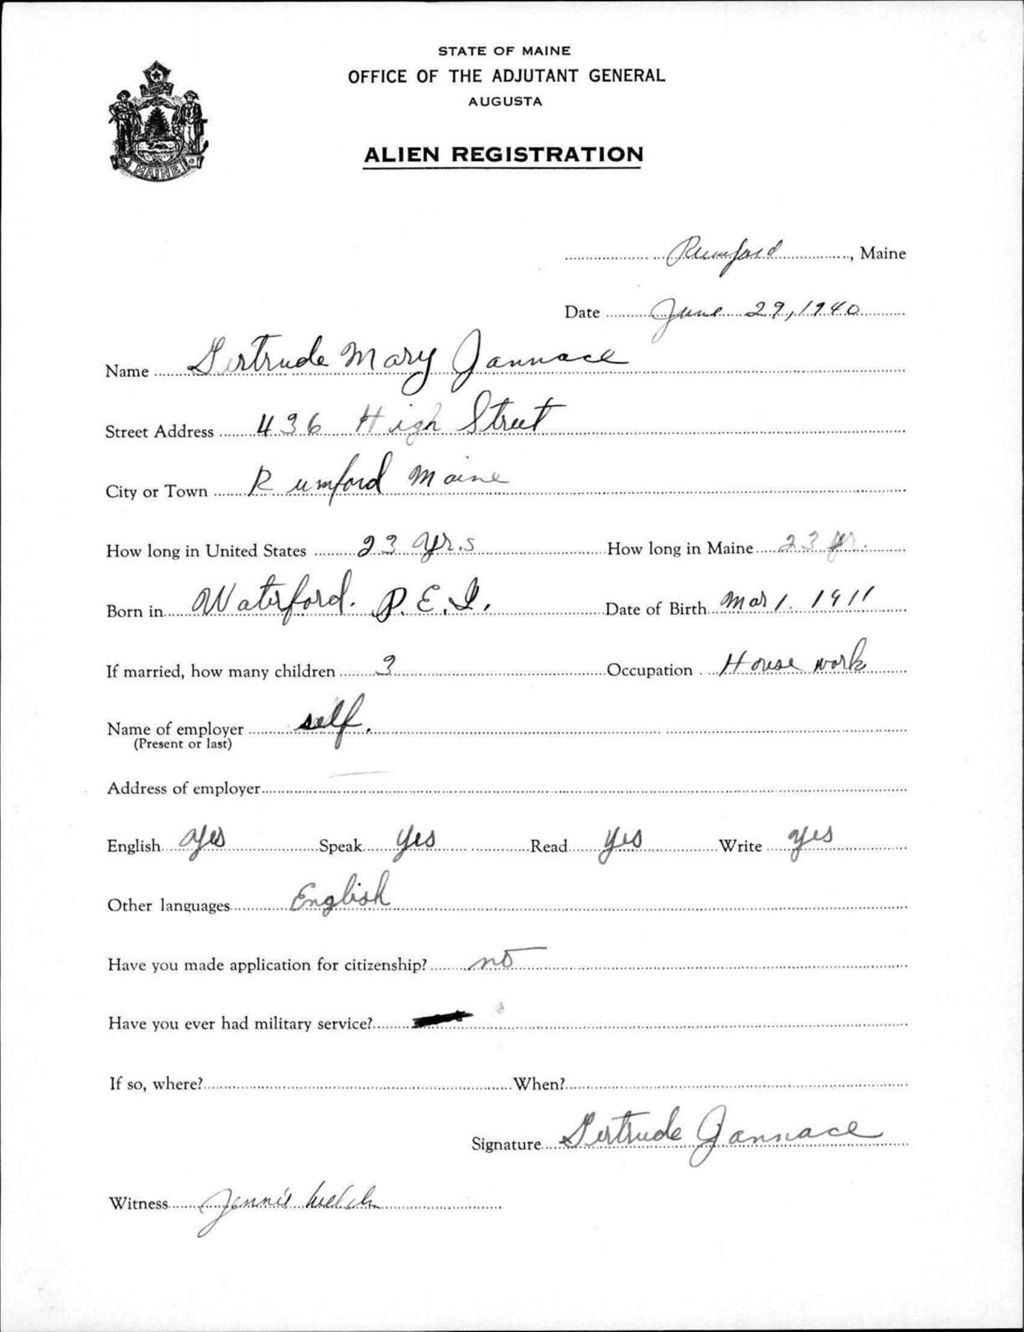 STATE OF MAINE
OFFICE OF THE ADJUTANT GENERAL
AUGUSTA
ALIEN REGISTRATION
MAINE
Rumford, Maine
Date June 29, 1940
Name Gertrude Mary Jannace
Street Address 436 High Street
City or Town Rumford Maine
How long in United States 23 yrs How long in Maine 23 yr.
Born in Waterford. P.E.I. Date of Birth Mar 1. 1911
If married, how many children 3 Occupation House work
Name of employer self.
(Present or last)
Address of employer
English yes Speak yes Read yes Write yes
Other languages English
Have you made application for citizenship? no
Have you ever had military service?
If so, where? When?
Signature Gertrude Jannace
Witness Jennie Welch